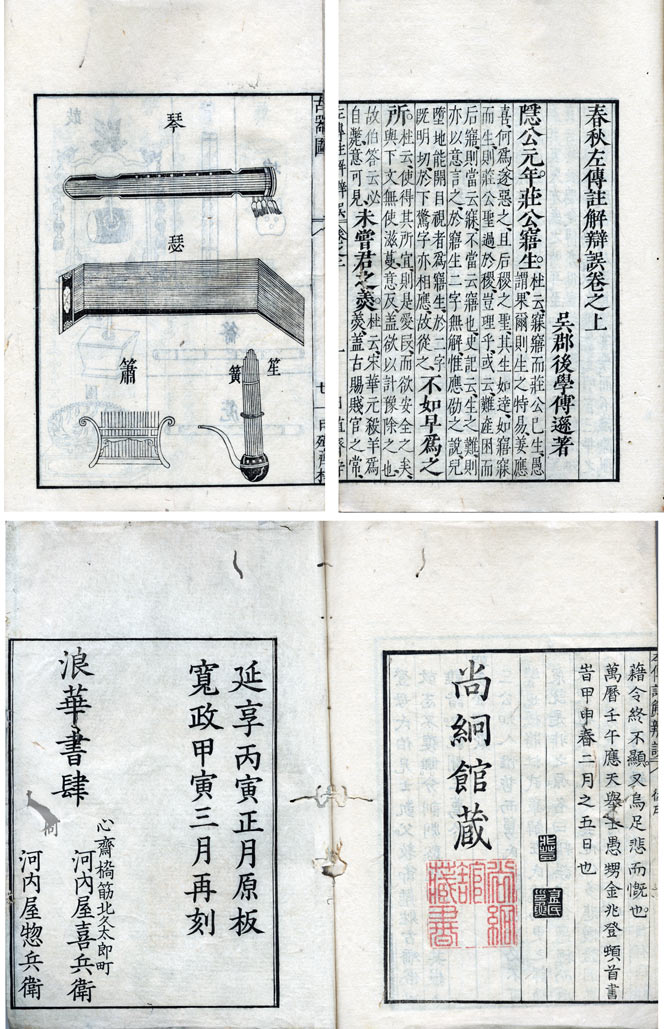 春秋左傳註解辯誤卷之上
吳郡後學傅遜著
隱公元年莊公寤生。杜云寐寤而莊公已生愚
謂果爾則生之特易姜應
喜何爲遂惡之、且后稷之聖其生如達、如寤寐
而生、則莊公聖過於稷豈理乎、或云、難産困而
后寤則當云寐、不當云寤也、史記云、生之難、則
亦以意言之、於寤生二字無解、惟應劭之說、兒
墮地能開目視者爲寤生、於二字
既明切、於下驚字亦相應、故從之、不如早爲之
所。杜云、使得其所宜、則是愛叚、而欲安全之矣、
與下文無使滋蔓意反、蓋欲以計豫除之也、
故伯答云必
自斃、意可見、未嘗君之羹。杜云、宋華元殺羊爲
羹、蓋古賜賤官之常、
古器圖
琴
瑟
笙
簧
簫
籍令終不顯又烏足悲而慨也。
萬曆壬午應天舉士愚甥金兆登頓首書
旹甲申春二月之五日也
尚絅館蔵
尚絅館藏書
延享丙寅正月原板
寬政甲寅三月再刻
浪華書肆
心齋橋筋北久太郎町
河内屋喜兵衛
河内屋惣兵衛